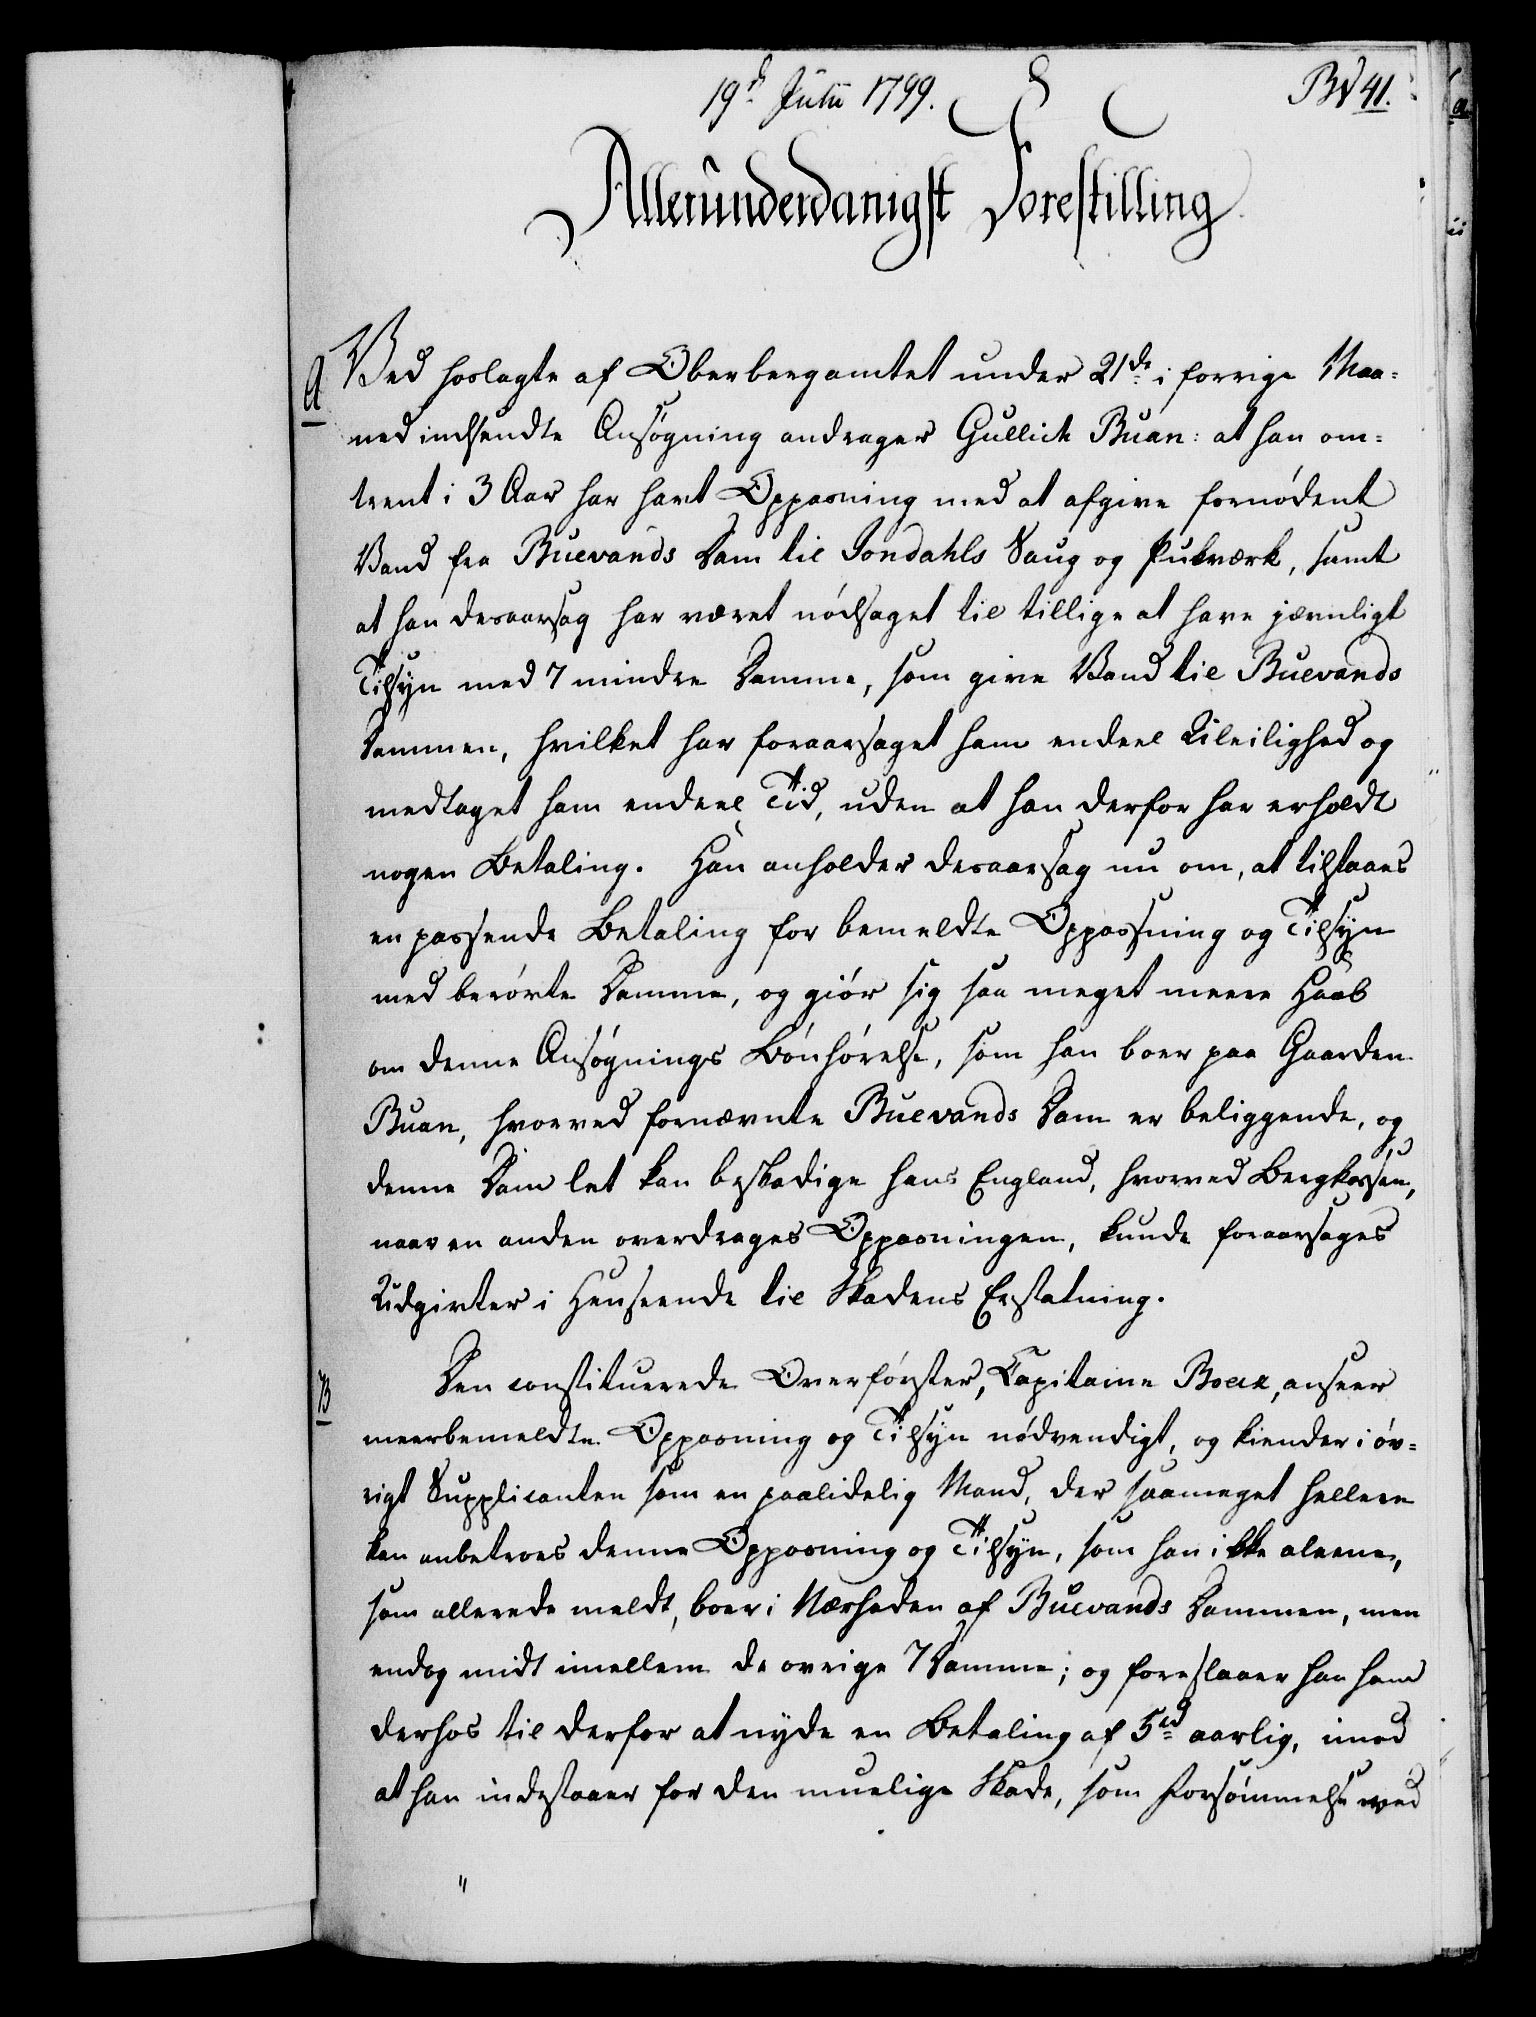 19d Julii 1799.
BV 41.
Allerunderdanigst Forestilling
A
Ved hoslagte af Oberbergamtet under 21de i forrige Maa-
ned indsendte Ansøgning andrager Gullich Buan: at han om-
trent i 3 Aar har havt Opposning med at afgive fornødent
Vand fra Buevands Dam til Jondahls Saug og Pukværk, samt
at han desaarsag har været nødsaget til tillige at have jævnligt
Tilsyn med 7 mindre Damme, som give Vand til Buevands
Dammen, hvilket har foraarsaget ham endeel Uleilighed og
medtaget ham endeel Tid, uden at han derfor har erholdt
nogen Betaling. Han anholder desaarsag nu om, at tilstaaes
en passende Betaling for bemeldte Oppassning og Tilsyn
med berørte Damme, og giør sig saa meget meere Haab
om denne Ansøgnings Bønhørelse, som han boer paa Gaarden
Buan, hvorved fornævnte Buevands Dam er beliggende, og
denne Dam let kan beskadige hans England, hvorved Bergkassen,
naar en anden overdrages Oppasningen, kunde foraarsages
Udgivter i Henseende til Skadens Erstatning.
B
Den constituerede Overførster, Capitaine Boeck, anseer
meerbemeldte Oppasning og Tilsyn nødvendigt, og kiender i øv-
rigt Supplicanten som en paalidelig Mand, der saameget hellere
kan anbetroes denne Oppasning og Tilsyn, som han ikke aleene,
som allerede meldt, boer i Nærheden af Buevands Dammen, men
endog midt imellem de øvrige 7 Damme; og foreslaaer han ham
derhos til derfor at nyde en Betaling af 5 rd aarlig, imod
at han indestaaer for den muelige Skade, som Forsømmelse ved
"